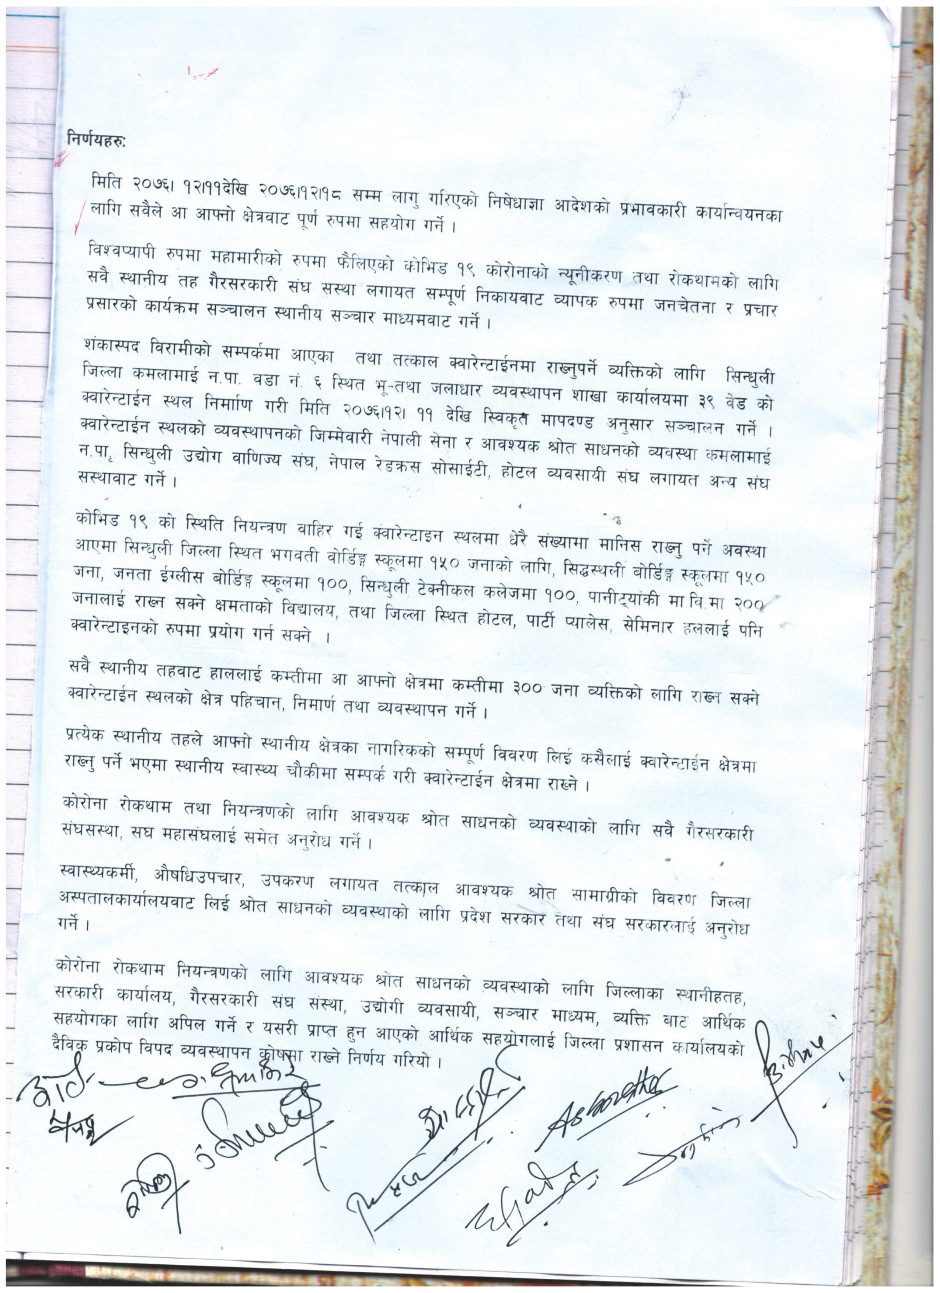 निर्णयहरु:
मिति २०७६। १२।११देखि २०७६।१२।१८ सम्म लागु गरिएको निषेधाज्ञा आदेशको प्रभावकारी कार्यान्वयनका
लागि सवैले आ आफ्नो क्षेत्रवाट पूर्ण रुपमा सहयोग गर्ने ।
विश्वप्यापी रुपमा महामारीको रुपमा फैलिएको कोभिड १९ कोरोनाको न्यूनीकरण तथा रोकथामको लागि
सवै स्थानीय तह गैरसरकारी संघ संस्था लगायत सम्पूर्ण निकायबाट व्यापक रुपमा जनचेतना र प्रचार
प्रसारको कार्यक्रम सञ्चालन स्थानीय सञ्चार माध्यमवाट गर्ने ।
शंकास्पद विरामीको सम्पर्कमा आएका तथा तत्काल क्वारेन्टाईनमा राख्नुपर्ने व्यक्तिको लागि सिन्धुली
जिल्ला कमलामाई न.पा. वडा नं. ६ स्थित भू-तथा जलाधार व्यवस्थापन शाखा कार्यालयमा ३९ वेड को
क्वारेन्टाईन स्थल निर्माण गरी मिति २०७६।१२। ११ देखि स्विकृत मापदण्ड अनुसार सञ्चालन गर्ने ।
क्वारेन्टाईन स्थलको व्यवस्थापनको जिम्मेवारी नेपाली सेना र आवश्यक श्रोत साधनको व्यवस्था कमलामाई
न.पा, सिन्धुली उद्योग वाणिज्य संघ, नेपाल रेडक्रस सोसाईटी, होटल व्यवसायी संघ लगायत अन्य संघ
सस्थावाट गर्ने ।
कोभिड १९ को स्थिति नियन्त्रण वाहिर गई क्वारेन्टाइन स्थलमा धेरै संख्यामा मानिस राख्नु पर्ने अवस्था
आएमा सिन्धुली जिल्ला स्थित भगवती वोर्डिङ्ग स्कूलमा १५० जनाको लागि, सिद्धस्थली वोर्डिङ्ग स्कूलमा १५०
जना, जनता ईंग्लीस बोर्डिङ्ग स्कूलमा १००, सिन्धुली टेक्नीकल कलेजमा १००, पानीट्यांकी मा.वि.मा २००
जनालाई राख्न सक्ने क्षमताको विद्यालय, तथा जिल्ला स्थित होटल, पार्टी प्यालेस, सेमिनार हललाई पनि
क्वारेन्टाइनको रुपमा प्रयोग गर्न सक्ने ।
सवै स्थानीय तहवाट हाललाई कम्तीमा आ आफ्नो क्षेत्रमा कम्तीमा ३०० जना व्यक्तिको लागि राख्न सक्ने
क्वारेन्टाईन स्थलको क्षेत्र पहिचान, निमार्ण तथा व्यवस्थापन गर्ने ।
प्रत्येक स्थानीय तहले आफ्नो स्थानीय क्षेत्रका नागरिकको सम्पूर्ण विवरण लिई कसैलाई क्वारेन्टाईन क्षेत्रमा
राख्नु पर्ने भएमा स्थानीय स्वास्थ्य चौकीमा सम्पर्क गरी क्वारेन्टाईन क्षेत्रमा राख्ने ।
कोरोना रोकथाम तथा नियन्त्रणको लागि आवश्यक श्रोत साधनको व्यवस्थाको लागि सवै गैरसरकारी
संघसस्था, सघ महासंघलाई समेत अनुरोध गर्ने ।
स्वास्थ्यकर्मी, औषधिउपचार, उपकरण लगायत तत्काल आवश्यक श्रोत सामाग्रीको विवरण जिल्ला
अस्पतालकार्यालयवाट लिई श्रोत साधनको व्यवस्थाको लागि प्रदेश सरकार तथा संघ सरकारलाई अनुरोध
गर्ने ।
कोरोना रोकथाम नियन्त्रणको लागि आवश्यक श्रोत साधनको व्यवस्थाको लागि जिल्लाका स्थानीहतह,
सरकारी कार्यालय, गैरसरकारी संघ संस्था, उद्योगी व्यवसायी, सञ्चार माध्यम, व्यक्ति बाट आर्थिक
सहयोगका लागि अपिल गर्ने र यसरी प्राप्त हुन आएको आर्थिक सहयोगलाई जिल्ला प्रशासन कार्यालयको
दैविक प्रकोप विपद व्यवस्थापन कोषमा राख्ने निर्णय गरियो ।